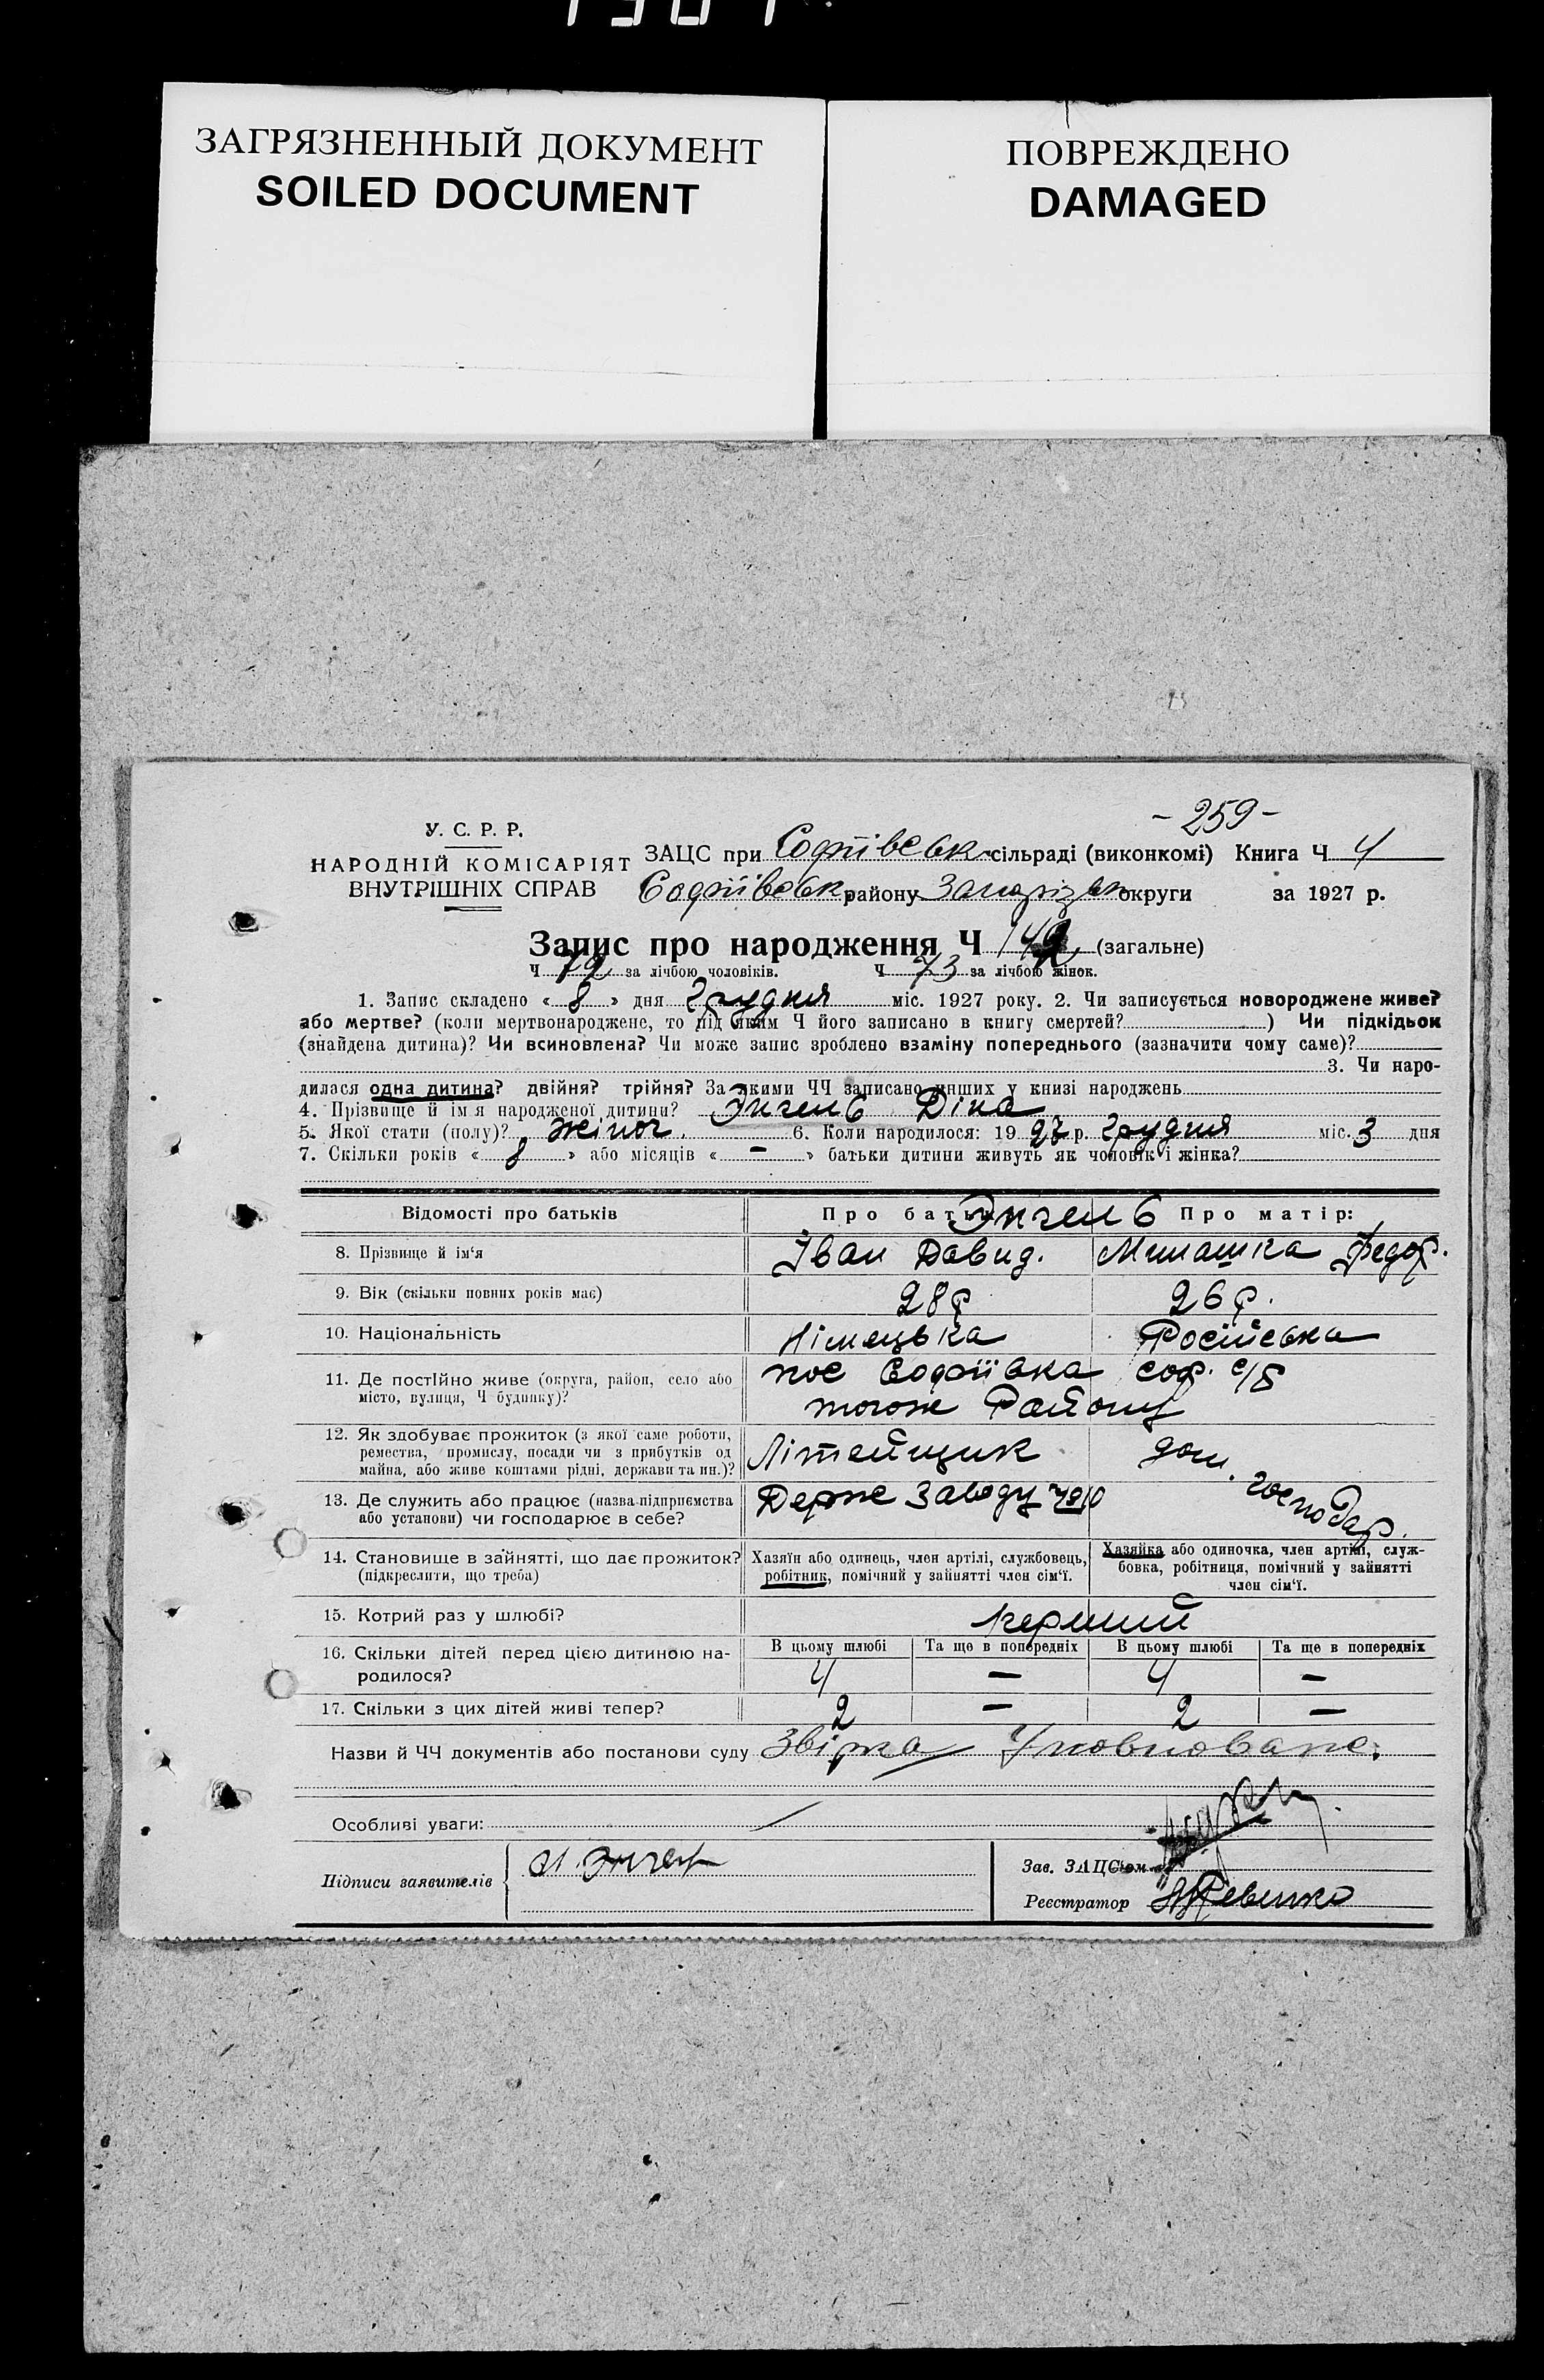 ЗАГРЯЗНЕННЫЙ ДОКУМЕНТ
SOILED DOCUMENT
ПОВРЕЖДЕНО
DAMAGED
-259-
У. С. Р. Р.
НАРОДНІЙ КОМІСАРІЯТ
ВНУТРІШНІХ СПРАВ
ЗАЦС при Софіївськ. сільраді (виконкомі) Книга Ч 4
Софіївськ. району Запорізьк округи за 1927 р.
Запис про народження Ч 149 (загальне)
Ч 79 за лічбою чоловіків. Ч 73 за лічбою жінок.
1. Запис складено « 8 » дня Грудня міс. 1927 року. 2. Чи записується новороджене живе?
або мертве? (коли мертвонароджене, то під яким Ч його записано в книгу смертей? ) Чи підкідьок
(знайдена дитина)? Чи всиновлена? Чи може запис зроблено взаміну попереднього (зазначити чому саме)?
3. Чи наро-
дилася одна дитина? двійня? трійня? За якими ЧЧ записано инших у книзі народжень
4. Прізвище й ім'я народженої дитини? Энгель Діна
5. Якої стати (полу)? жіноч. 6. Коли народилося: 19 27 р. Грудня міс. 3 дня
7. Скільки років « 8 » або місяців « - » батьки дитини живуть як чоловік і жінка?
Відомості про батьків Про батька: Энгель Про матір:
8. Прізвище й ім'я Іван Давид. Минашка Федор.
9. Вік (скільки повних років має) 28 р 26 р.
10. Національність Німецька Російська
11. Де постійно живе (округа, район, село або
місто, вулиця, Ч будинку)?
пос Софіївка соф. с/б
тогож Району
12. Як здобуває прожиток (з якої саме роботи,
ремества, промислу, посади чи з прибутків од
майна, або живе коштами рідні, держави та ин.)?
Літейщик дом. господар.
13. Де служить або працює (назва підприємства
або установи) чи господарює в себе?
Держ Заводу
14. Становище в зайнятті, що дає прожиток?
(підкреслити, що треба)
Хазяїн або одинець, член артілі, службовець,
робітник, помічний у зайнятті член сім'ї.
Хазяйка або одиночка, член артілі, служ-
бовка, робітниця, помічний у зайнятті
член сім'ї.
15. Котрий раз у шлюбі? перший
16. Скільки дітей перед цією дитиною на-
родилося?
В цьому шлюбі Та ще в попередніх В цьому шлюбі Та ще в попередніх
4 - 4 -
17. Скільки з цих дітей живі тепер? 2 - 2 -
Назви й ЧЧ документів або постанови суду Звірка
Особливі уваги:
Підписи заявителів
Зав. ЗАЦС'ом
Реєстратор